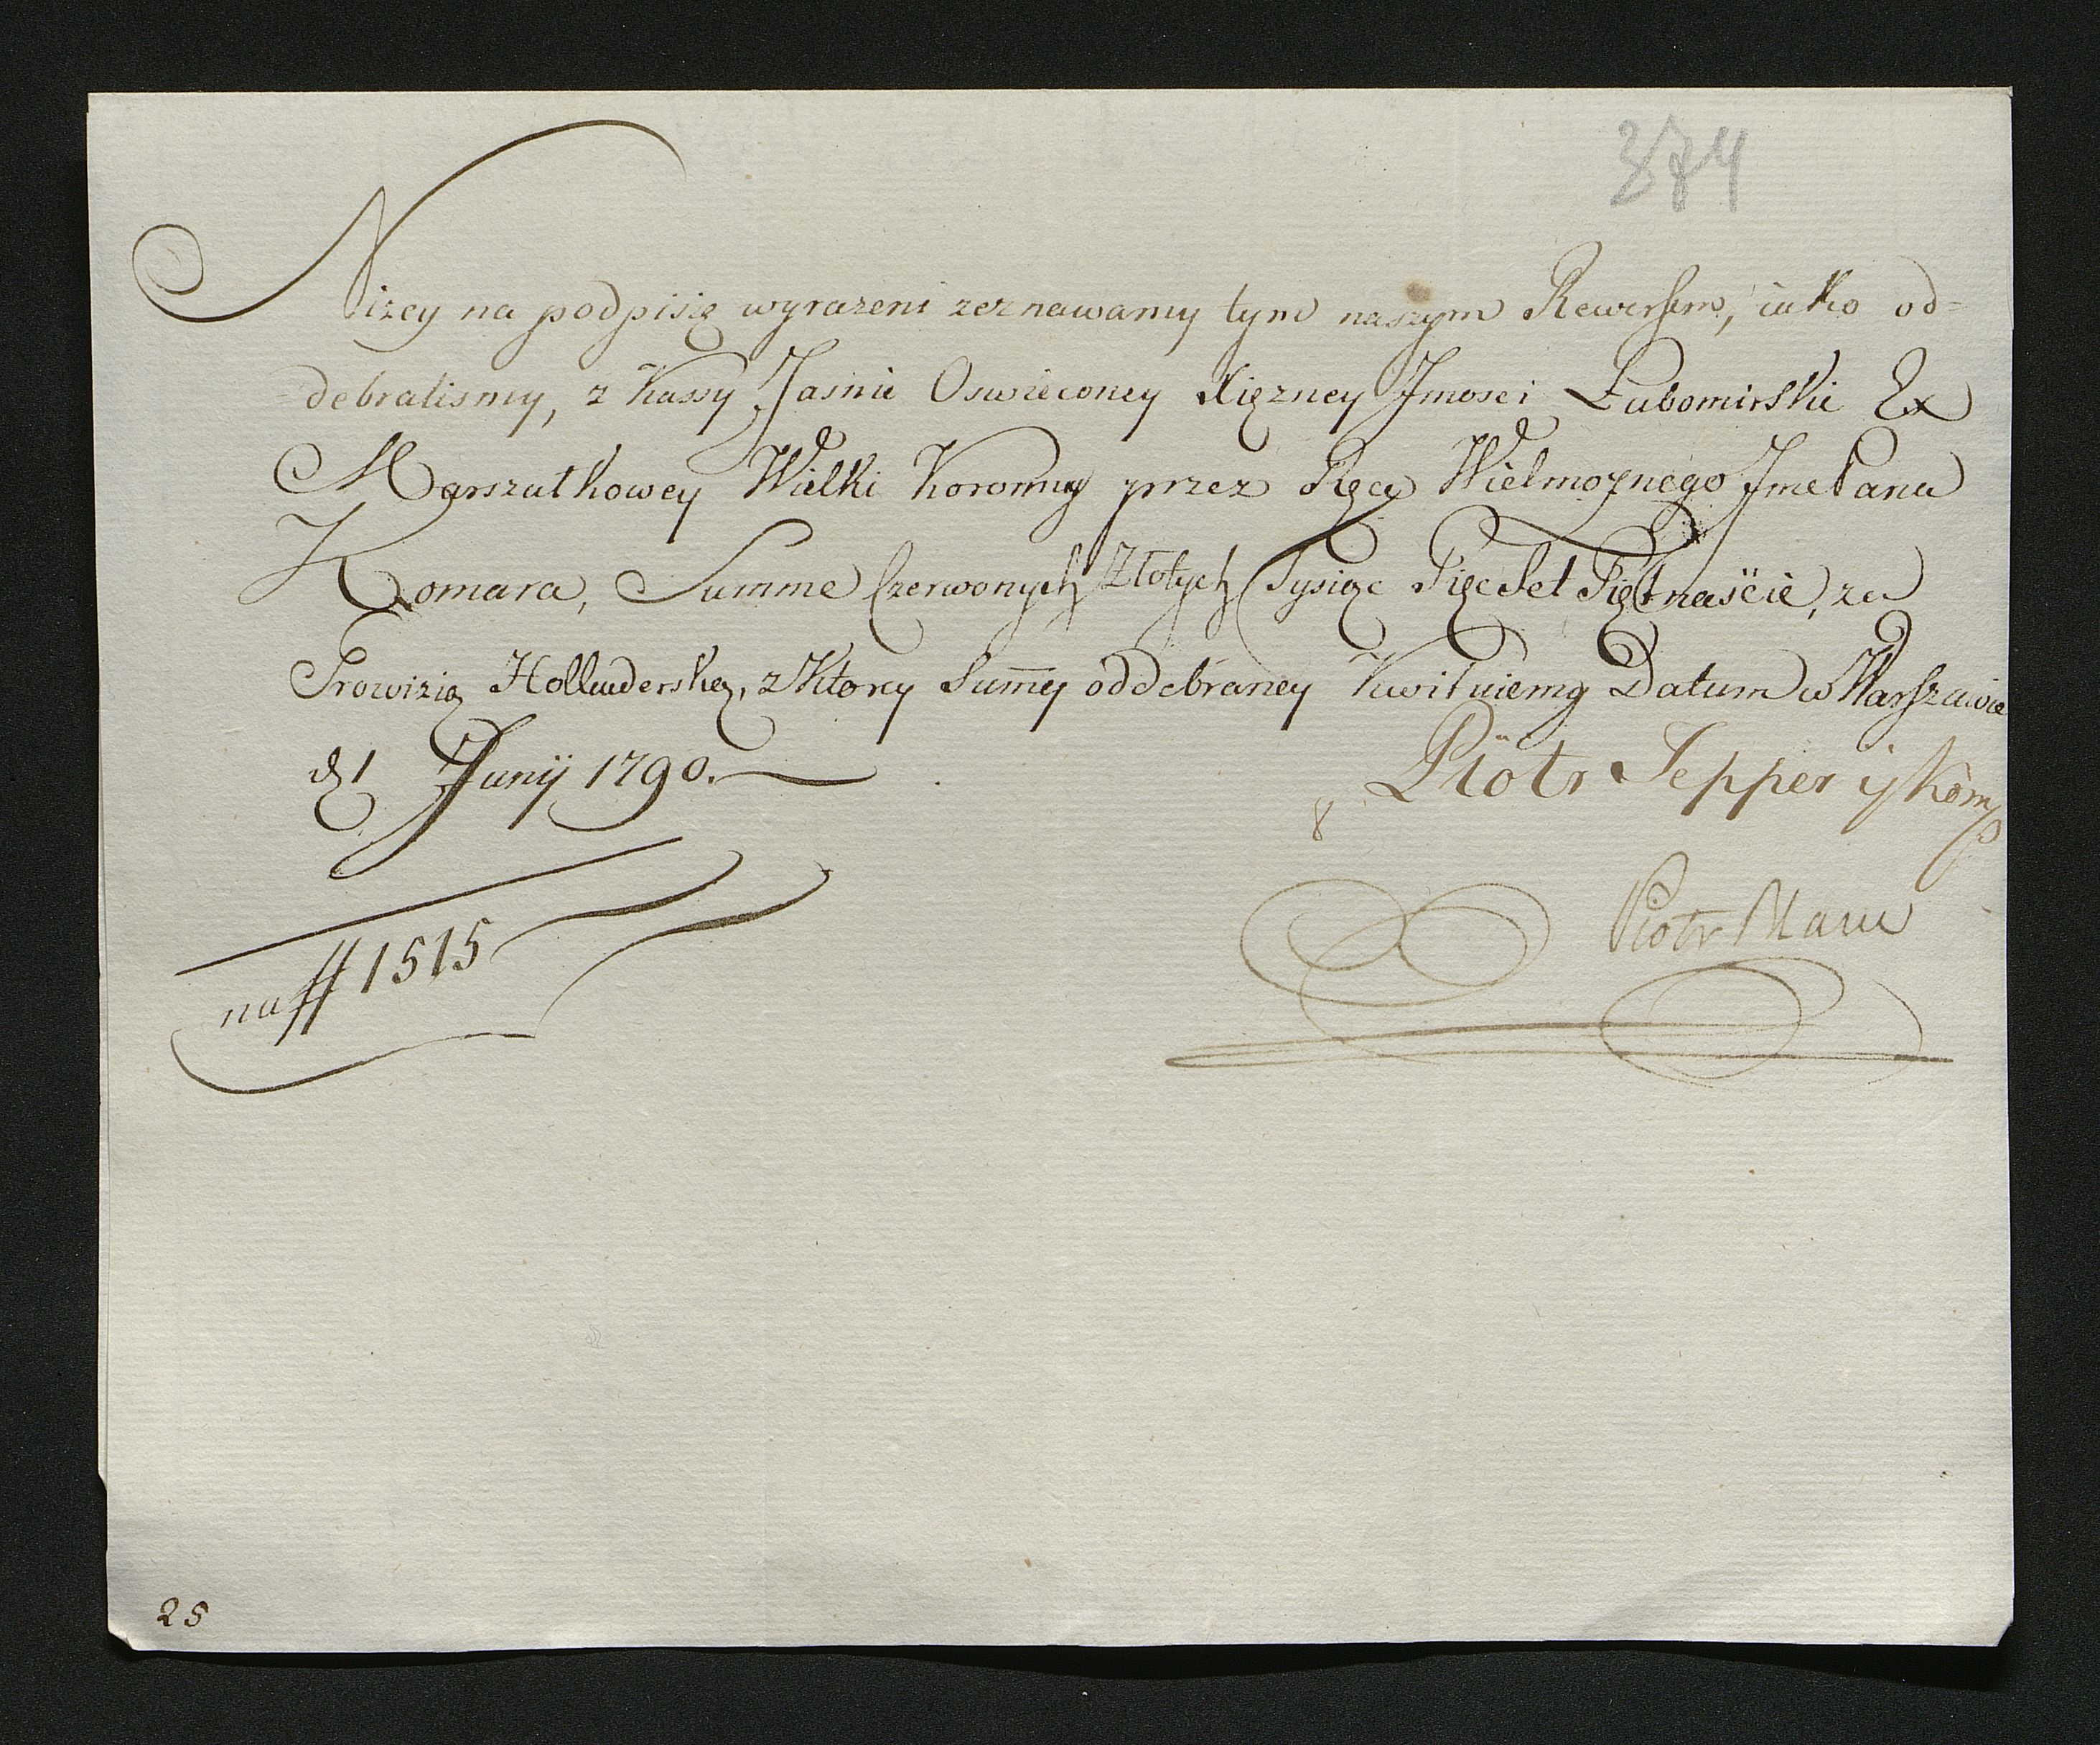 374
Niżey na podpisię wyrazeni zeznawamy tym naszym Rewersem, iako od=
=debralismy, z Kassy Jasnie Oswieconey Xiężney Jmosci Lubomirski Ex
Marszałkowey Wielki Koronny przez Ręce Wielmożnego Jme Pana
Komara, Summe Czerwonych Złotych Tysiąc Pięc Set Piętnaście, za
Prowizią Hollenderską, z Ktory Sum̄y oddebraney Kwituiemy Datum w Warszawie
d 1 Junÿ 1790.
Piotr Tepper y Komp
na ## 1515
Piotr
25